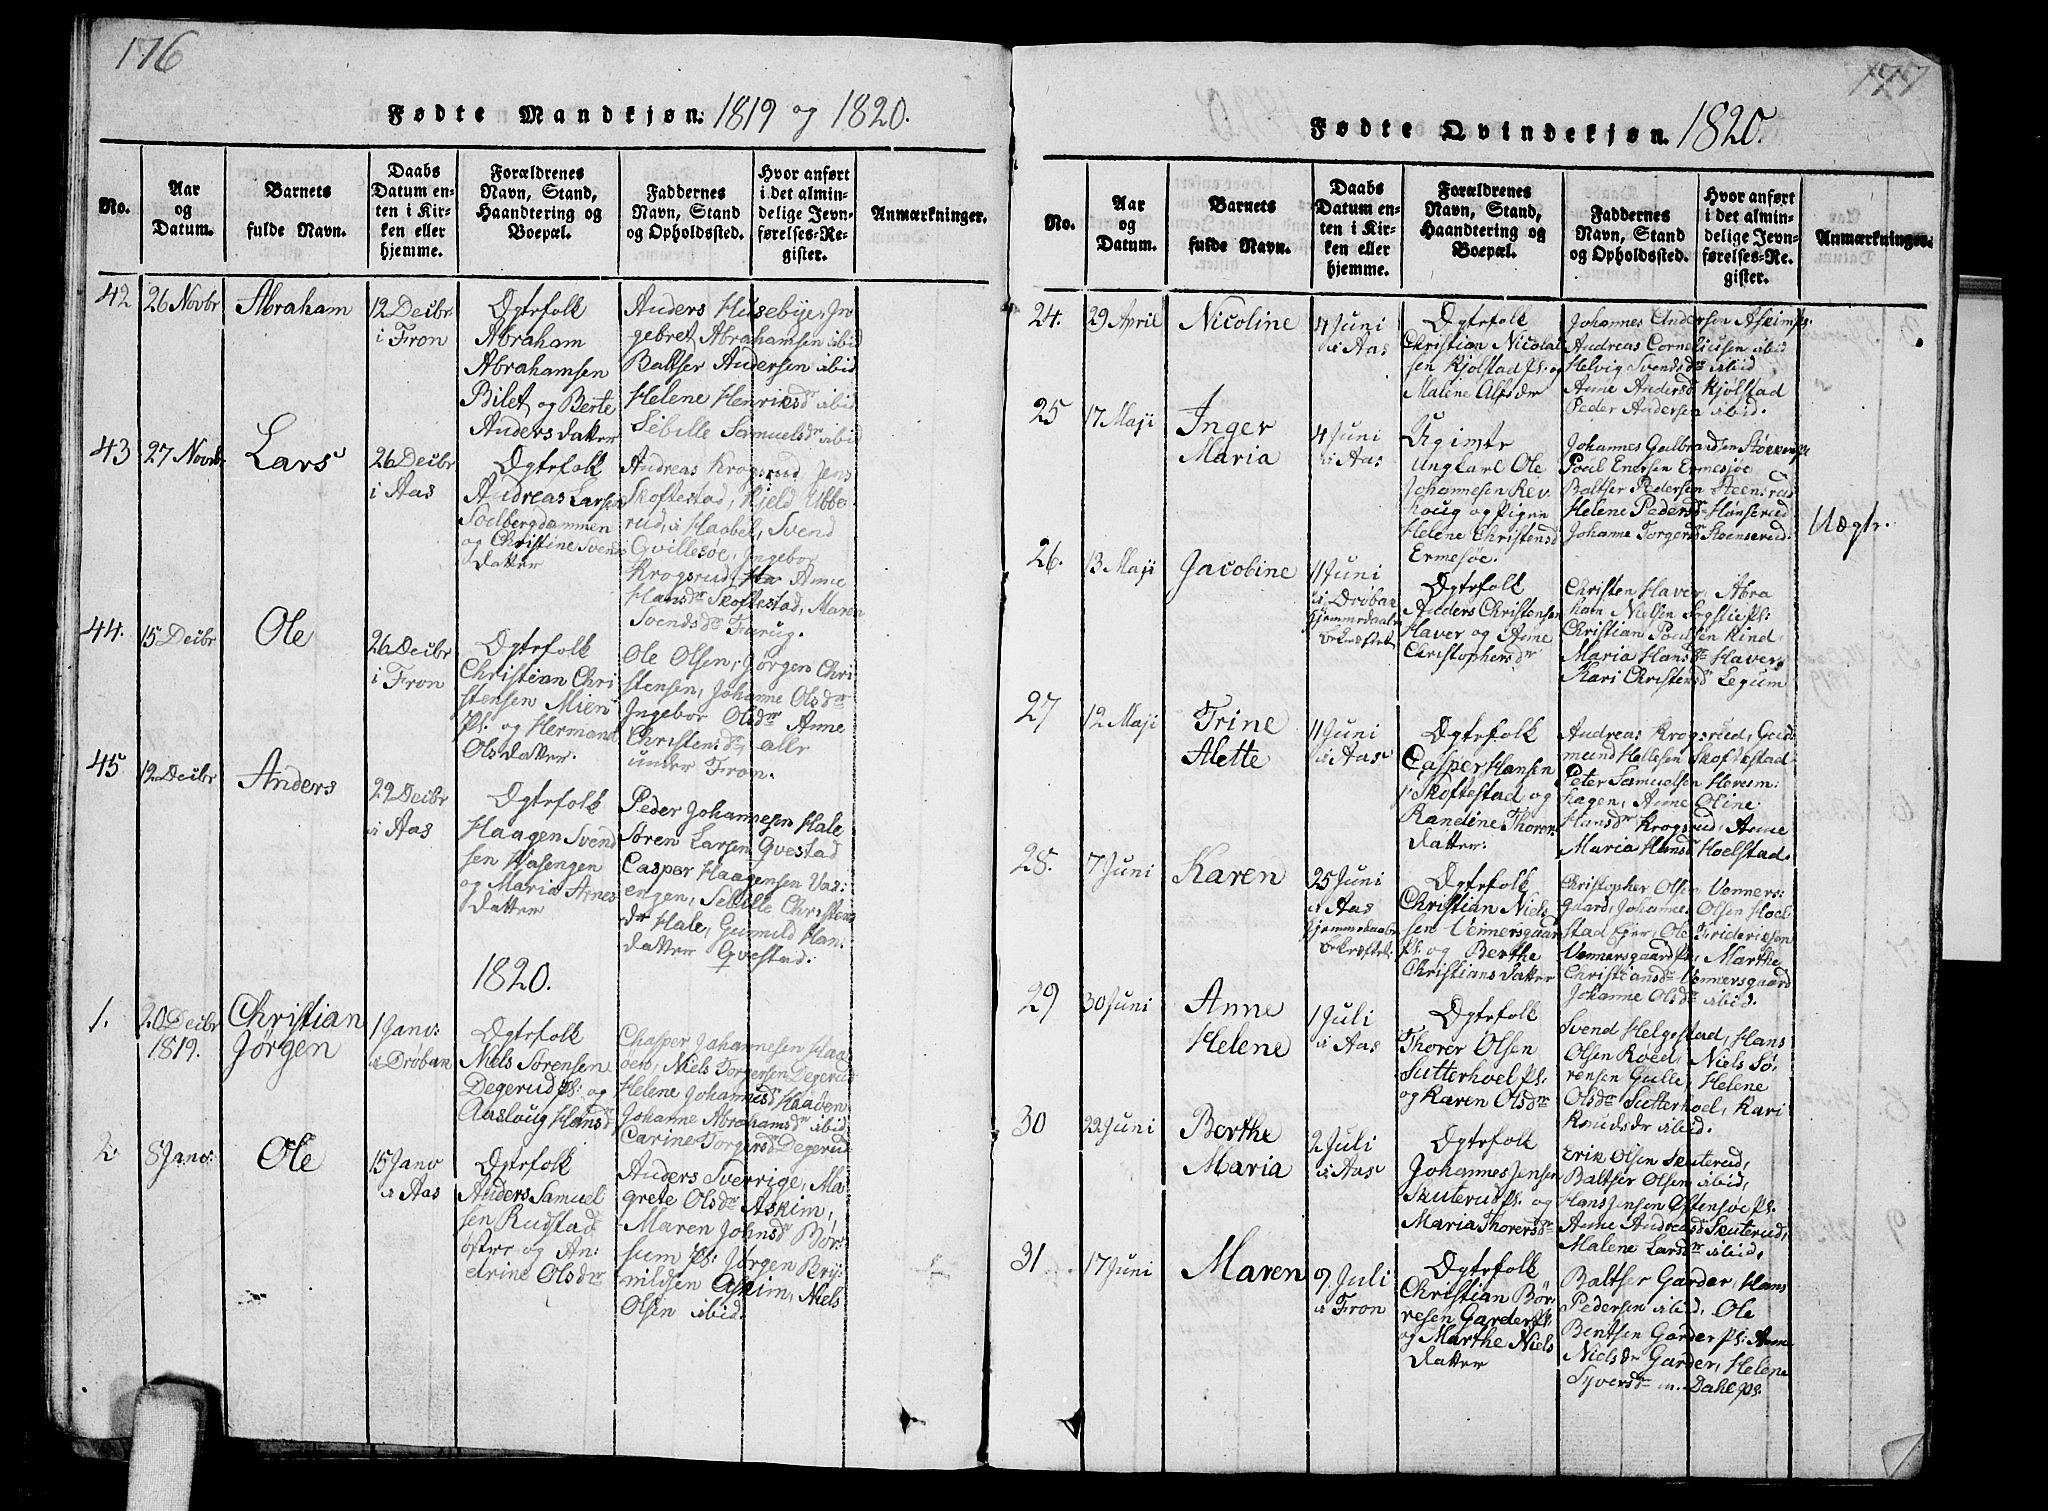 176
Fødte Mandkjøn. 1819 og 1820.
No.
Aar
og
Datum.
Barnets
fulde Navn.
Daabs
Datum en-
ten i Kir-
ken eller
hjemme.
Forældrenes
Navn, Stand,
Haandtering og
Boepæl.
Faddernes
Navn, Stand
og Opholdssted.
Hvor anført
i det almin-
delige Jevn-
førelses-Re-
gister.
Anmærkninger.
42
26 Novbr
Abraham
12 Decbr
i Fron
Ægtefolk
Abraham
Abrahamsen
Bilet og Berte
Andersdatter
Anders Husebye, In
gebret Abrahamsen ibid
Baltser Andersen ibid
Helene Henriksdr ibid
Sebille Samuelsdr ibid
43
27 Novbr
Lars
26 Decbr
i Aas
Ægtefolk
Andreas Larsen
Solbergdammen
og Christine Svends
datter
Andreas Krogsrud, Jens
Skoftestad, Kjeld Ubbe
rud, i Haabel, Svend
Qvillesøe, Ingebor
Krogsrud, Anne
Hansdr Skoftestad, Maren
Svendsdr Farug.
44.
15 Decbr
Ole
26 Decbr
i Fron
Ægtefolk
Christian Chri
stensen Mien
Pl: og Hermand
Olsdatter.
Ole Olsen, Jørgen Chri
stensen, Johanne Olsdr
Ingebor Olsdr Anne
Christensdr, alle
under Fron.
45
12 Decbr
Anders
29 Decbr
i Aas
Ægtefolk
Haagen Svend
sen Vasengen
og Maria Arnes
datter
Peder Johannesen Hale
Søren Larsen Qvestad
Casper Haagensen Vas:
engen, Sebille Christens
dr Hale, Gunnild Han:
datter Qvestad.
1820.
1.
20 Decbr
1819.
Christian
Jørgen
1 Janv:
i Drøbak
Ægtefolk
Niels Sørensen
Degerud Pl: og
Aasloug Hansdr
Chasper Johannesen Haa
øen, Niels Torgersen Degerud
Helene Johannisdr Haaøen
Johanne Abrahamsdr ibid
Carine Torgersdr Degerud
2
8 Janv:
Ole
15 Janv
i Aas
Ægtefolk
Anders Samuel
sen Rudstad
østre og An:
drine Olsdr
Anders Sverrige, Ma
grete Olsdr Askim,
Maren Johnsdr Bør:
sum Pl: Jørgen Bry:
nildsen Askim, Niels
Olsen ibid.
177
Fødte Qvindekjøn. 1820.
No.
Aar
og
Datum.
Barnets
fulde Navn.
Daabs
Datum en-
ten i Kir-
ken eller
hjemme.
Forældrenes
Navn, Stand,
Haandtering og
Boepæl.
Faddernes
Navn, Stand
og Opholdssted.
Hvor anført
i det almin-
delige Jevn-
førelses-Re-
gister.
Anmærkninger.
24.
29 April
Nicoline
4 Juni
i Aas
Ægtefolk
Christian Nicolai
sen Kjølstad Pl: og
Malene Alfsdr
Johannes Andersen Askim Pl:
Andreas Corneliusen ibid
Helvig Svendsdr ibid
Anne Andersd Kjølstad
Peder Andersen ibid.
25
17 Maji
Inger
Maria
4 Juni
i Aas
Ugivte
Ungkarl Ole
Johannesen Rev.
houg og Pigen
Helene Christensd
Ermesøe.
Johannes Gulbrandsen
Poul Enersen Ermesjøe
Baltser Pedersen Steensrud
Helene Pedersdr Hønserud
Johanne Torgersdr Hønserud
Uægte.
26.
13 Maji
Jacobine
11 Juni
i Drøbak
hjemmedaaben
bekræftet
Ægtefolk
Anders Christensen
Haver og Anne
Christophersdr
Christen Haver, Abra
ham Nielsen Sogstie Pl:
Christian Poulsen Kind
Maria Hansdr Haver,
Kari Christensd Legum
27
12 Maji
Trine
Alette
11 Juni
i Aas
Ægtefolk
Casper Hansen
Skoftestad og
Randine Thorer
datter:
Andreas Krogsrud, Gud
mund Hellesen Skoftestad
Peter Samuelsen Herum:
hagen, Anne Oline
Hansdr Krogsrud, Anne
Maria Hansdr Hoelstad.
28.
7 Juni
Karen
25 Juni
i Aas
hjemmedaaben
bekræftet:
Ægtefolk
Christian Niel
sen Vennersgaard
Pl: og Berthe
Christiansdatter
Christopher Olsen Venners:
gaard, Johannes Olsen Hoel
stad Ejer, Ole Friderikson
Vennersgaard Pl: Marthe
Christiansdr Vennersgaard
Johanne Olsdr ibid.
29
30 Juni
Anne
Helene
1 Juli
i Aas
Ægtefolk
Thorer Olsen
Sutterhoel Pl:
og Karen Olsdr
Svend Helgestad, Hans
Olsen Roed, Niels Sø
rensen Gulle, Helene
Olsdr Sutterhoel, Kari
Knudsdr ibid.
30
22 Juni
Berthe
Maria
2 Juli
i Aas
Ægtefolk
Johannes Jensen
Skuterud Pl: og
Maria Thorersdr
Erik Olsen Skuterud,
Baltser Olsen ibid,
Hans Jensen Østensjøe Pl:
Anne Andreasd Skuterud,
Malene Larsdr ibid,
31
17 Juni
Maren
9 Juli
i Fron
Ægtefolk
Christian Bør
resen Garder Pl:
og Marthe Niels
datter
Baltser Garder, Hans
Pedersen ibid, Ole
Bentsen Garder Pl: Anne
Nielsdr Garder, Helene
Syversdr m. Dahl Pl.